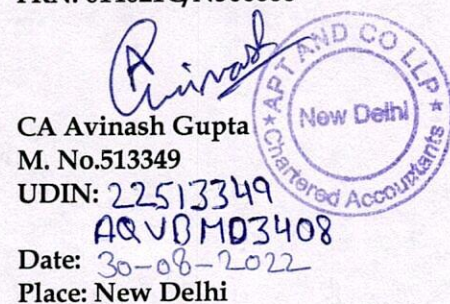 Avinash
CA Avinash Gupta
M. No.513349
UDIN: 22513349
AQVBMD3408
Date: 30-08-2022
Place: New Delhi
APT AND CO LLP
New Delhi
Chartered Accountants